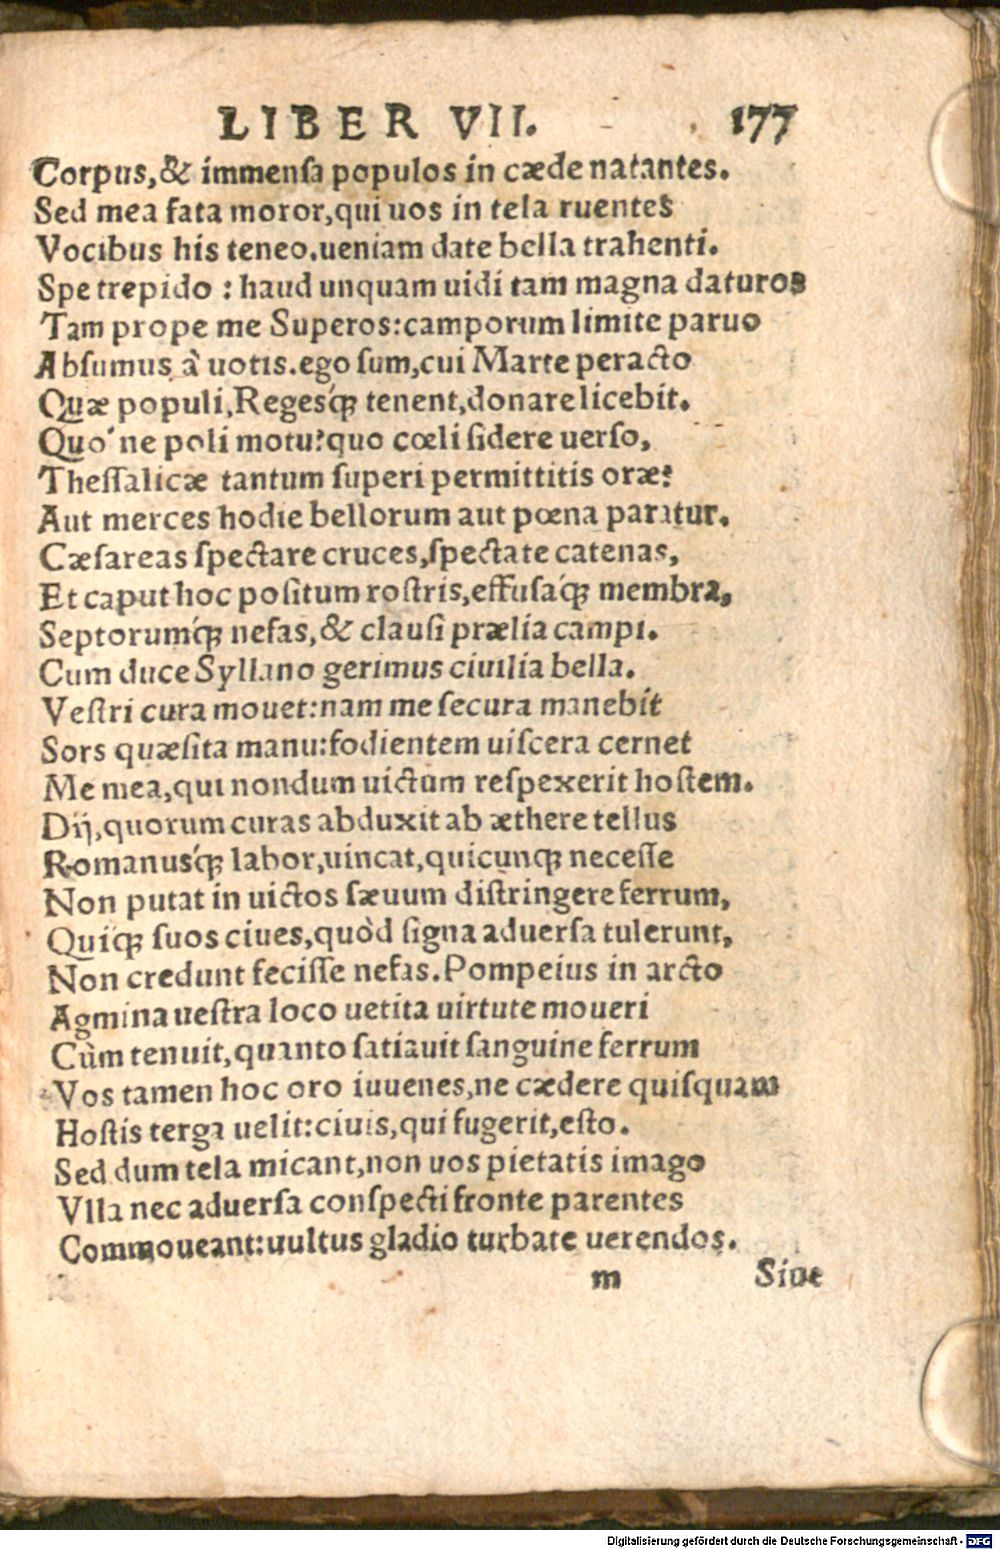 LIBER VII. 177
Corpus,& immenſa populos in cæde natantes.
Sed mea fata moror,qui uos in tela ruentes
Vocibus his teneo.ueniam date bella trahenti.
Spe trepido : haud unquam uidi tam magna daturos
Tam prope me Superos:camporum limite paruo
Abſumus à uotis.ego ſum,cui Marte peracto
Quæ populi,Regesq́ꝫ tenent,donare licebit.
Quo´ne poli motu?quo cœli ſidere uerſo,
Theſſalicæ tantum ſuperi permittitis oræ?
Aut merces hodie bellorum aut pœna paratur.
Cæſareas ſpectare cruces,ſpectate catenas,
Et caput hoc poſitum roſtris,effuſaq́ꝫ membra,
Septorumq́ꝫ nefas,& clauſi prælia campi.
Cum duce Syllano gerimus ciuilia bella.
Veſtri cura mouet:nam me ſecura manebit
Sors quæſita manu:fodientem uiſcera cernet
Me mea,qui nondum uictum reſpexerit hoſtem.
Dij,quorum curas abduxit ab æthere tellus
Romanusq́ꝫ labor,uincat,quicunqꝫ neceſſe
Non putat in uictos ſæuum diſtringere ferrum,
Quiq́ꝫ ſuos ciues,quòd ſigna aduerſa tulerunt,
Non credunt feciſſe nefas.Pompeius in arcto
Agmina ueſtra loco uetita uirtute moueri
Cùm tenuit,quanto ſatiauit ſanguine ferrum
Vos tamen hoc oro iuuenes,ne cædere quiſquam
Hoſtis terga uelit:ciuis,qui fugerit,eſto.
Sed dum tela micant,non uos pietatis imago
Vlla nec aduerſa conſpecti fronte parentes
Commoueant:uultus gladio turbate uerendos.
m Siue
Digitalisierung gefördert durch die Deutsche Forschungsgemeinschaft - DFG